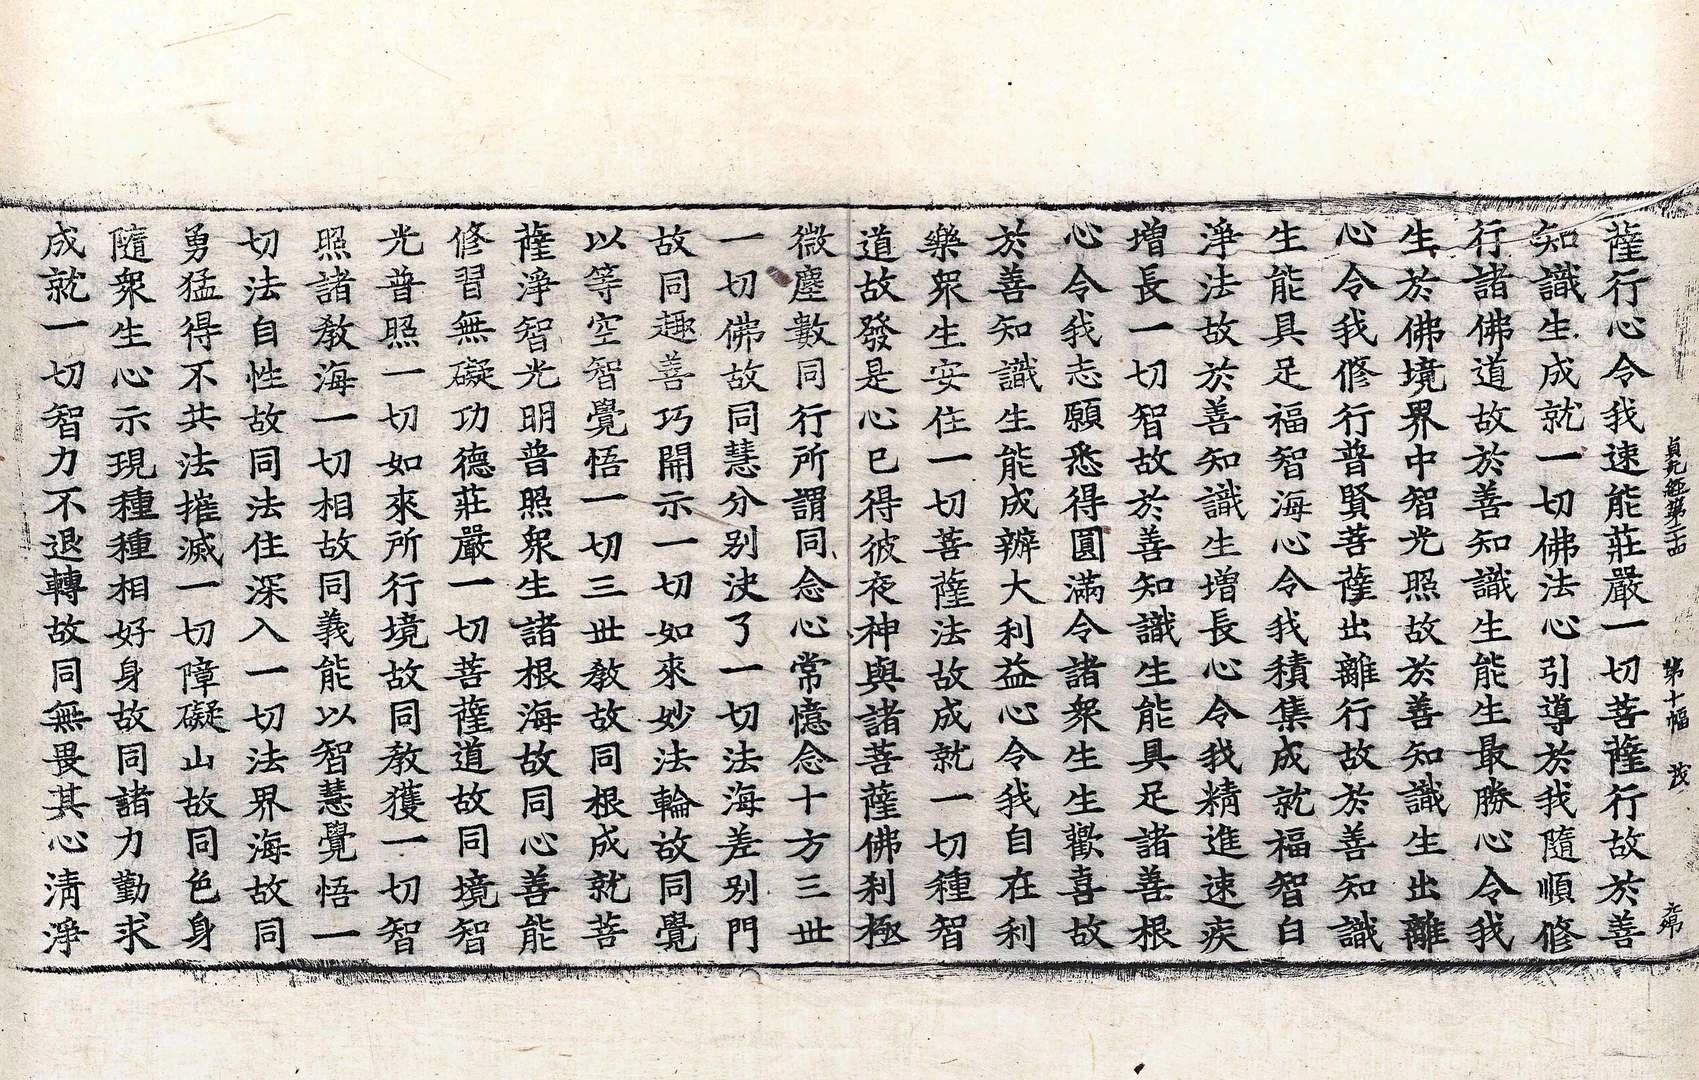 貞元經第二十四 第十幅 茂
薩行心令我速能莊嚴一切菩薩行故於善
知識生成就一切佛法心引導於我隨順修
行諸佛道故於善知識生能生最勝心令我
生於佛境界中智光照故於善知識生出離
心令我修行普賢菩薩出離行故於善知識
生能具足福智海心令我積集成就福智白
淨法故於善知識生增長心令我精進速疾
增長一切智故於善知識生能具足諸善根
心令我志願悉得圓滿令諸衆生生歡喜故
於善知識生能成辦大利益心令我自在利
樂衆生安住一切菩薩法故成就一切種智
道故發是心已得彼夜神與諸菩薩佛刹極
微塵數同行所謂同念心常憶念十方三世
一切佛故同慧分别決了一切法海差别門
故同趣善巧開示一切如來妙法輪故同覺
以等空智覺悟一切三世教故同根成就菩
薩淨智光明普照衆生諸根海故同心善能
修習無礙功德莊嚴一切菩薩道故同境智
光普照一切如來所行境故同教獲一切智
照諸教海一切相故同義能以智慧覺悟一
切法自性故同法住深入一切法界海故同
勇猛得不共法摧滅一切障礙山故同色身
隨衆生心示現種種相好身故同諸力勤求
成就一切智力不退轉故同無畏其心清淨